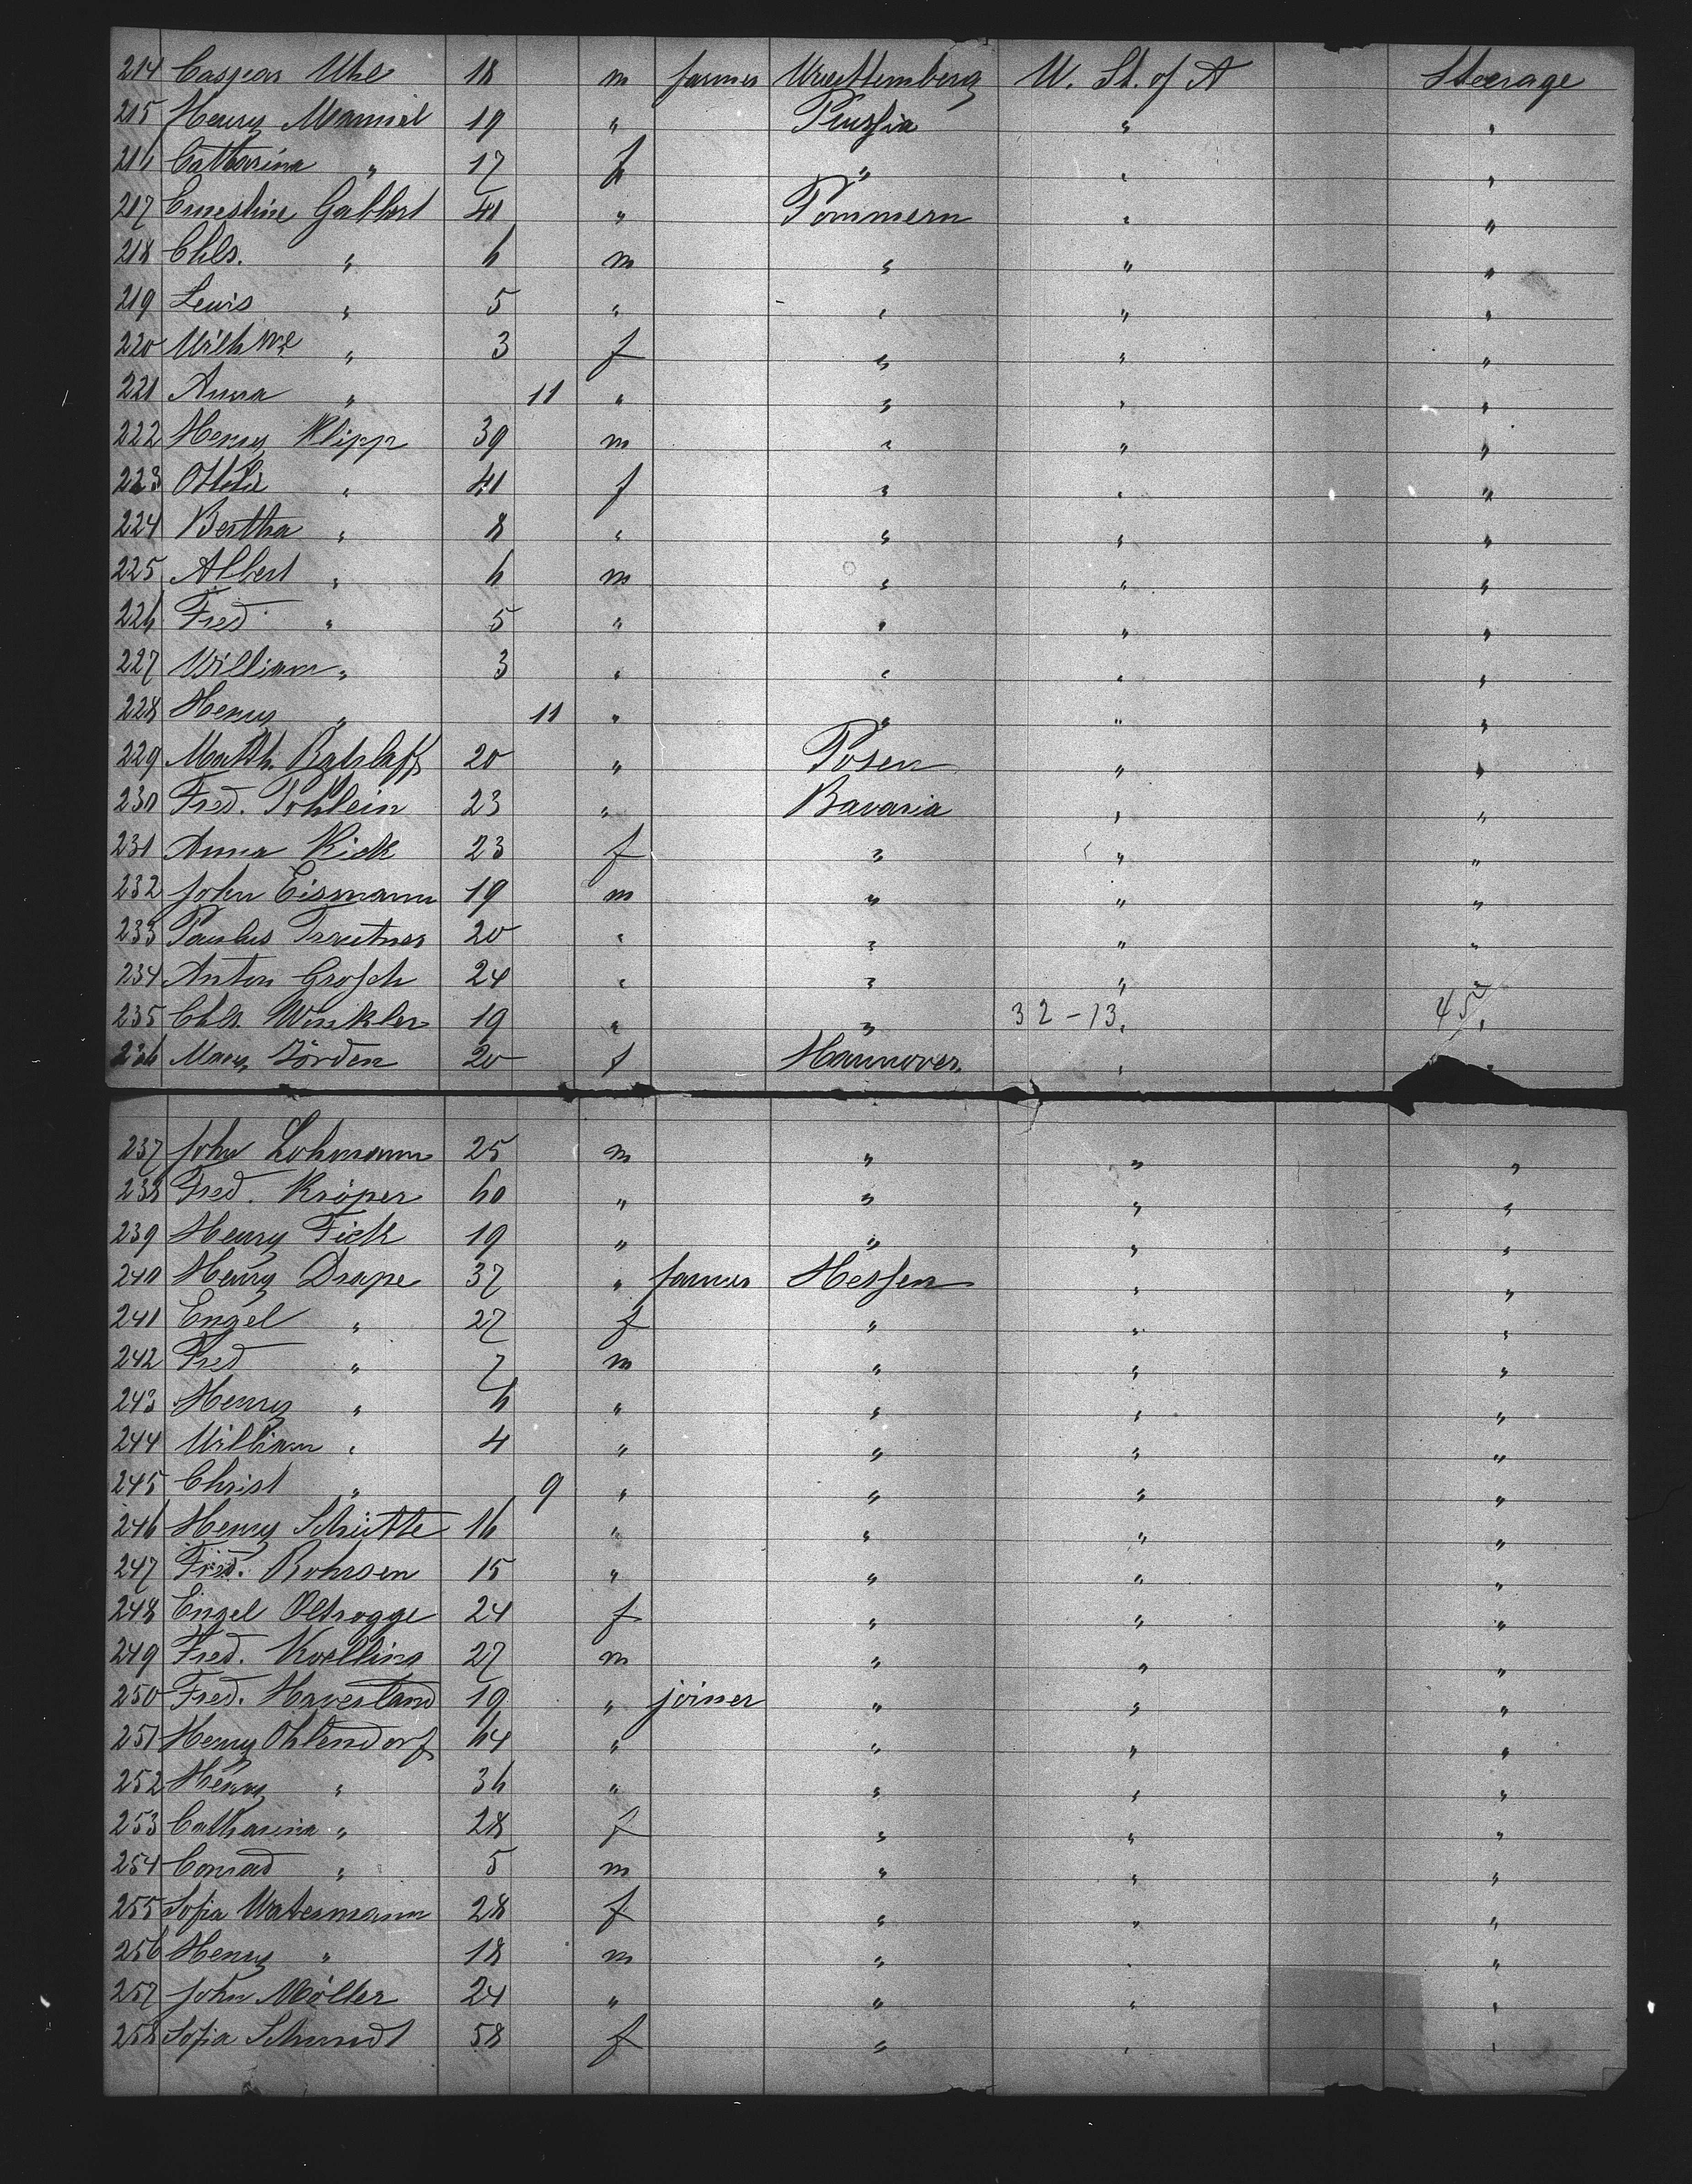 214 Caspar Uhl 18 m farmer Wuerttemberg U. St. of A Steerage
215 Henry Manniel 19 " Prussia " "
216 Catharina " 17 f " " "
217 Ernestine Gabbert 41 " Pommern " "
218 Chls. " 6 m " " "
219 Lewis " 5 " " " "
220 Wilhme " 3 f " " "
221 Anna " 11 " " " "
222 Henry Klipp 39 m " " "
223 Ottilie " 41 f " " "
224 Bertha " 8 " " " "
225 Albert " 6 m " " "
226 Fred " 5 " " " "
227 William " 3 " " " "
228 Henry " 11 " " " "
229 Matth. Ratzlaff 20 " Posen " "
230 Fred. Pohlein 23 " Bavaria " "
231 Anna Kick 23 f " " "
232 John Eismann 19 m " " "
233 Paulus Trautner 20 " " " "
234 Anton Grosch 24 " " " "
235 Chls. Winkler 19 " " 32-13 " 45 "
236 Mary Jörden 20 f Hannover " "
237 John Lohmann 25 m " " "
238 Fred. Kröper 60 " " " "
239 Henry Fick 19 " " " "
240 Henry Drape 37 " farmer Hessen " "
241 Engel " 27 f " " "
242 Fred " 7 m " " "
243 Henry " 6 " " " "
244 William " 4 " " " "
245 Christ " 9 " " " "
246 Henry Schütte 16 " " " "
247 Fried. Rohrsen 15 " " " "
248 Engel Oltrogge 24 f " " "
249 Fred. Koelling 27 m " " "
250 Fred. Haverland 19 " joiner " " "
251 Henry Ohlendorf 64 " " " "
252 Henry " 36 " " " "
253 Catharina " 28 f " " "
254 Conrad " 5 m " " "
255 Sofia Watermann 28 f " " "
256 Henry " 18 m " " "
257 John Möller 24 " " " "
258 Sofia Schmidt 58 f " " "